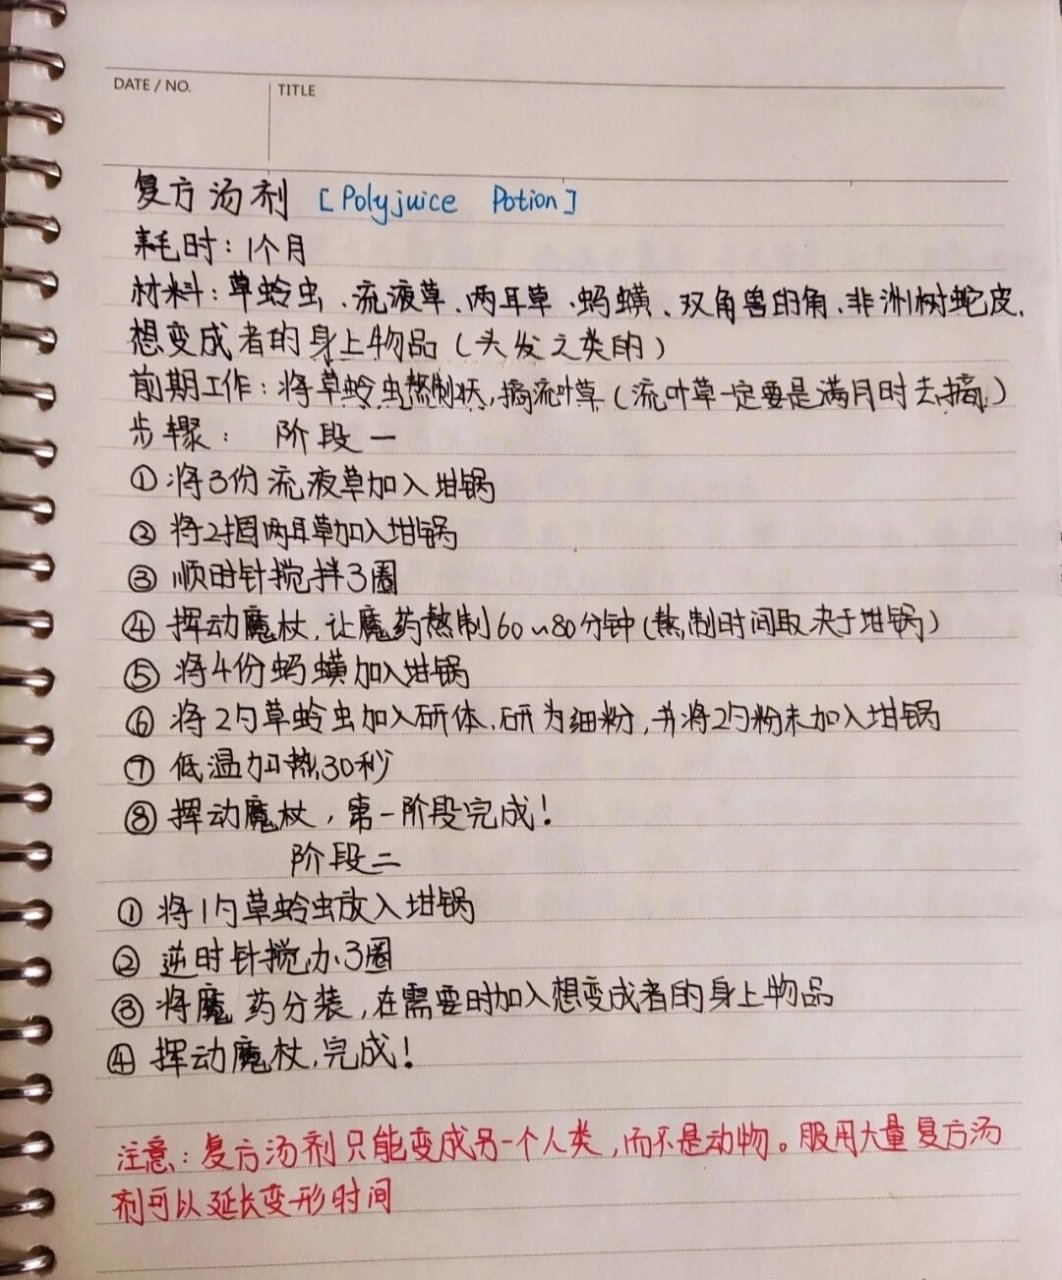 DATE / NO.
TITLE
复方汤剂 [Polyjuice Potion]
耗时：1个月
材料：草蛉虫、流液草、两耳草、蚂蟥、双角兽的角、非洲树蛇皮、
想变成者的身上物品（头发之类的）
前期工作：将草蛉虫熬制，摘流叶草（流叶草一定要是满月时去摘。）
步骤： 阶段一
① 将3份流液草加入坩锅
② 将2捆两耳草加入坩锅
③ 顺时针搅拌3圈
④ 挥动魔杖，让魔药熬制60~80分钟（熬制时间取决于坩锅）
⑤ 将4份蚂蟥加入坩锅
⑥ 将2勺草蛉虫加入研体，研为细粉，并将2勺粉末加入坩锅
⑦ 低温加热30秒
⑧ 挥动魔杖，第一阶段完成！
阶段二
① 将1勺草蛉虫放入坩锅
② 逆时针搅办3圈
③ 将魔药分装，在需要时加入想变成者的身上物品
④ 挥动魔杖，完成！
注意：复方汤剂只能变成另一个人类，而不是动物。服用大量复方汤
剂可以延长变形时间